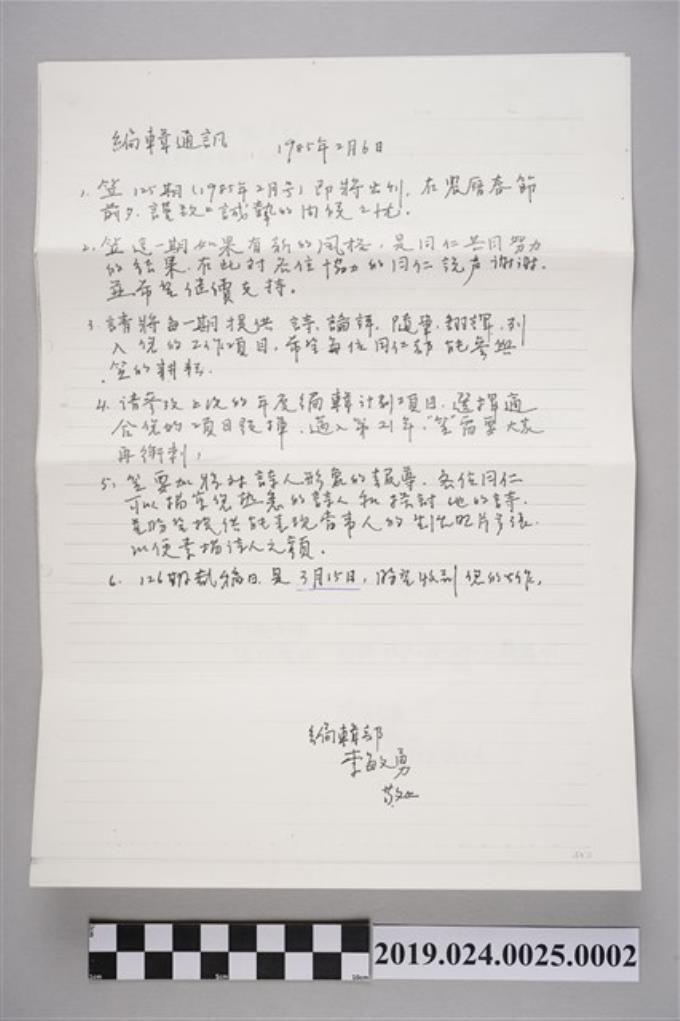 編輯通訊 1985年2月6日
1. 笠125期(1985年2月号)即將出刊，在農曆春節
前夕，謹致上誠摯的問候之忱。
2. 笠這一期如果有新的風格，是同仁共同努力
的結果，在此對各位協力的同仁說声謝謝，
並希望繼續支持。
3. 請將每一期提供詩、論評、隨筆、翻譯，列
入您的工作項目，希望每位同仁都能參與
笠的耕耘。
4. 請參攷上次的年度編輯計劃項目，選擇適
合您的項目發揮，邁入第21年，"笠"需要大家
再衝刺；
5. 笠要加強對詩人形象的報導，各位同仁
可以描寫您熟悉的詩人和探討他的詩，
並盼望提供能表現當事人的生活照片多張，
以便素描詩人之顏。
6. 126期截稿日是3月15日，盼望收到您的大作，
編輯部
李敏勇
敬上
2019.024.0025.0002
1cm 5cm 10cm